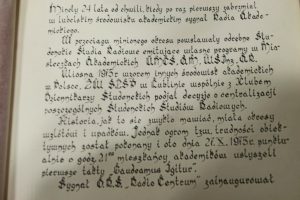 Minęły 24 lata od chwili, kiedy po raz pierwszy zabrzmiał
w lubelskim środowisku akademickim sygnał Radia Akade-
mickiego.
W przeciągu minionego okresu powstawały odrębne Stu-
denckie Studia Radiowe emitujące własne programy w Mia-
steczkach Akademickich UMCS, AM, WSInż, AR.
Wiosną 1975r. wzorem innych środowisk akademickich
w Polsce, ZW SZSP w Lublinie wspólnie z Klubem
Dziennikarzy Studenckich podjął decyzję o centralizacji
poszczególnych Studenckich Studiów Radiowych.
Historia, jak to się zwykło mawiać, miała okresy
wzlotów i upadków. Jednak ogrom tzw. trudności obiek-
tywnych został pokonany i oto dnia 26 X 1975r. punktu-
alnie o godz. 21⁰⁰ mieszkańcy akademików usłyszeli
pierwsze takty „Gaudeamus Igitur".
Sygnał "Radio Centrum" zainaugurował